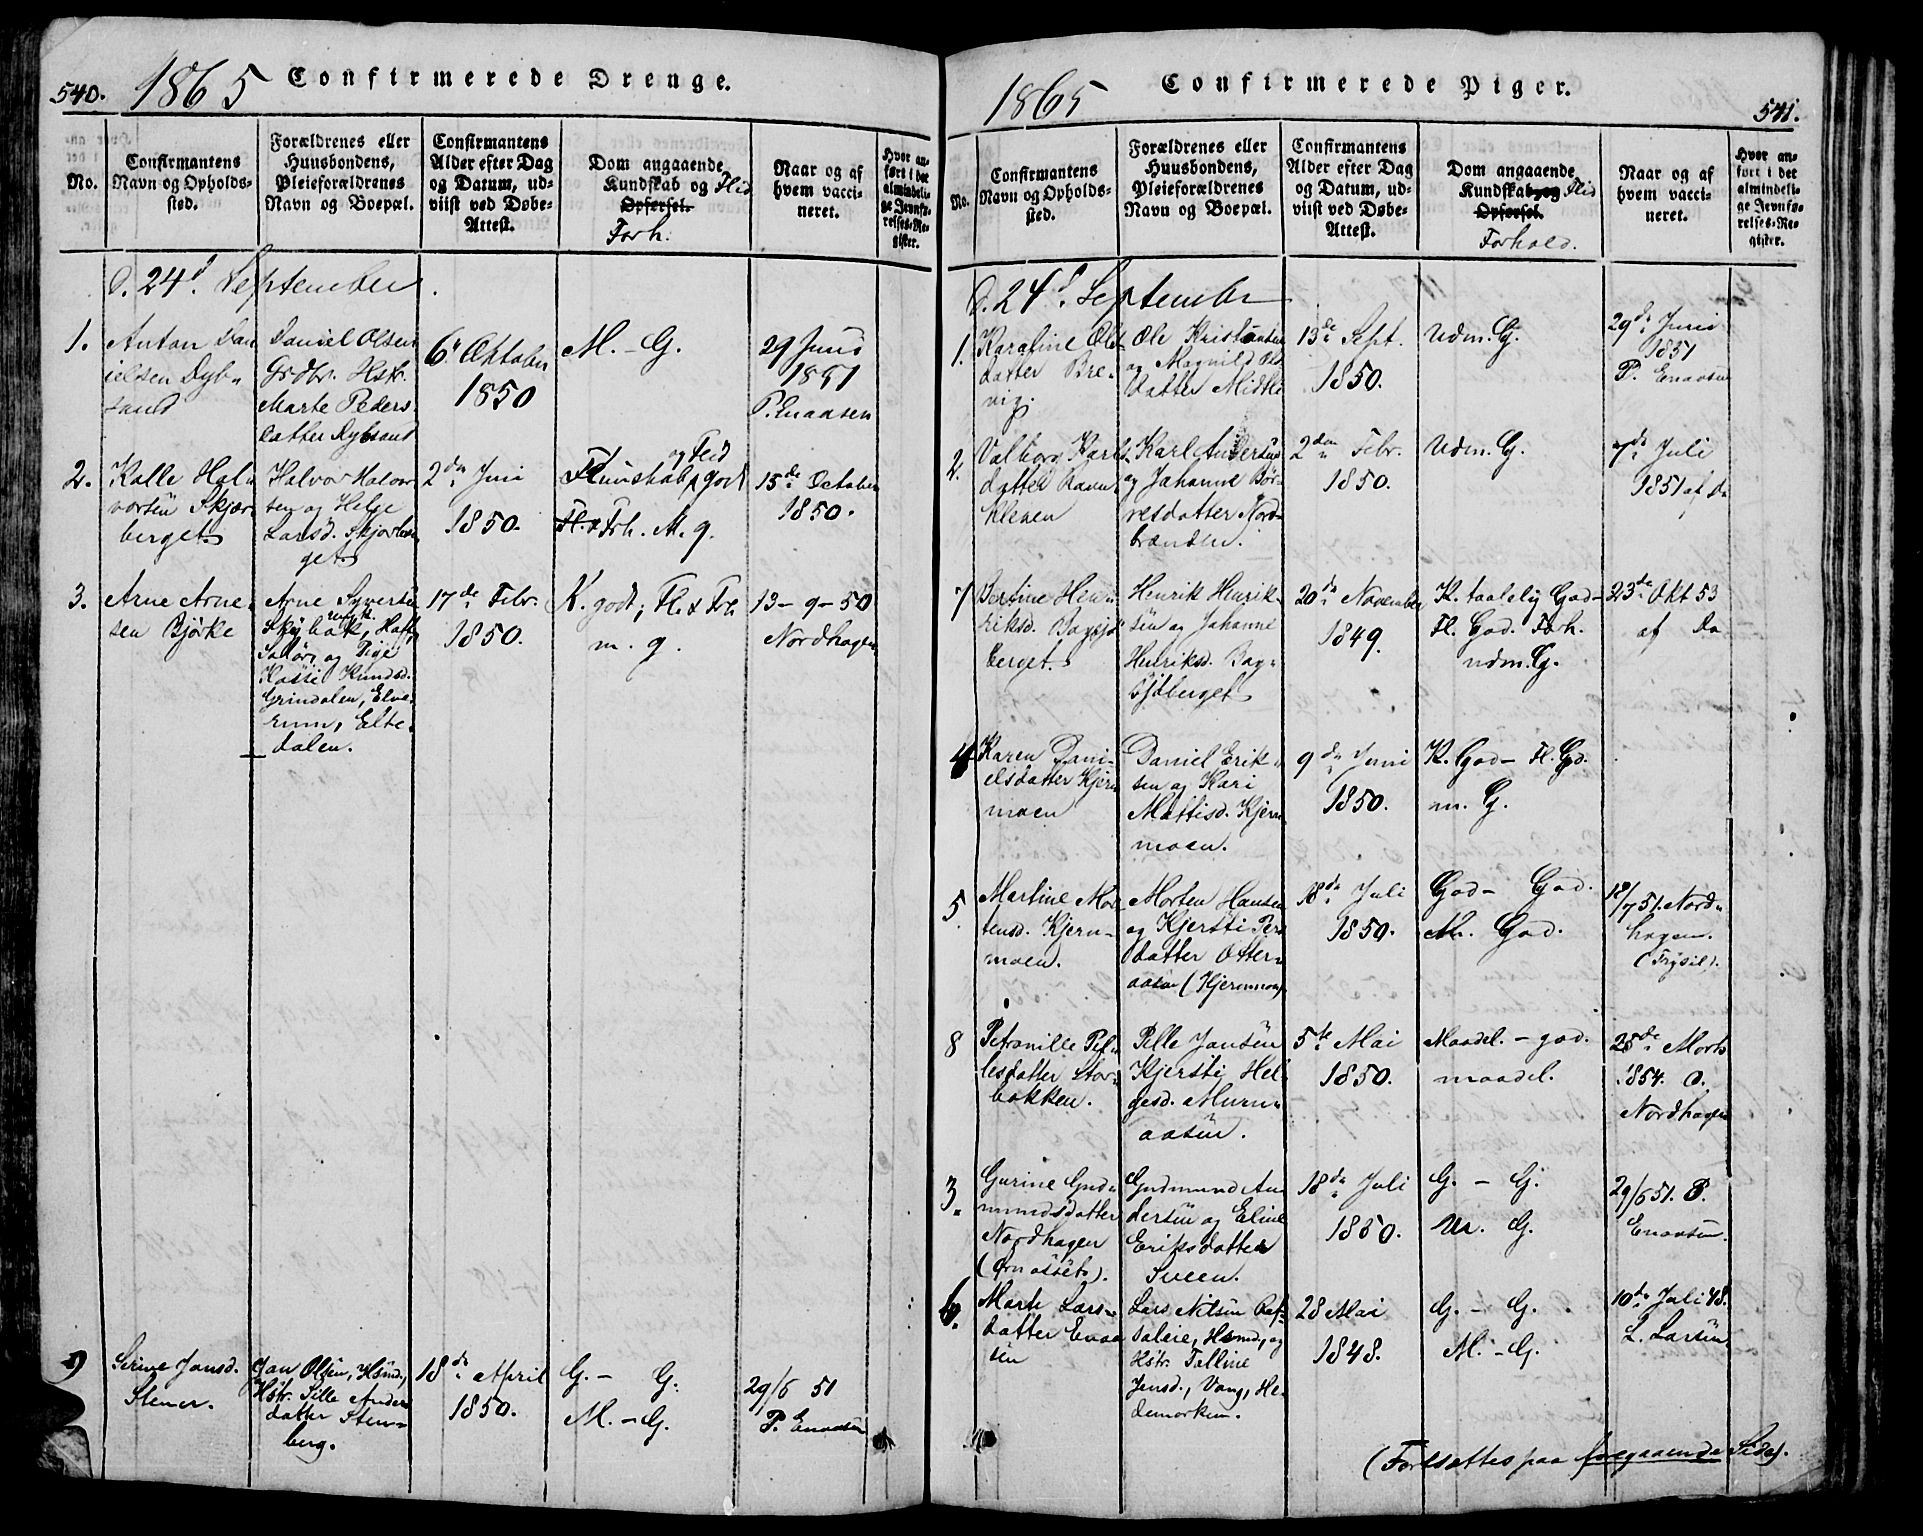 540.
1865
Confirmerede Drenge.
No.
Confirmantens
Navn og Opholds-
sted.
Forældrenes eller
Huusbondens,
Pleieforældrenes
Navn og Boepæl.
Confirmantens
Alder efter Dag
og Datum, ud-
viist ved Døbe-
Attest.
Dom angaaende
Kundskab og Flid
Opførsel.
Forh.
Naar og af
hvem vacci-
neret.
Hvor an-
ført i det
almindeli-
ge Jevnfø-
relses-Re-
gister.
d. 24d. September.
1.
Anton Dan
ielsen Dyb-
sand
Daniel Olsen
Grdbr. Hstr.
Marte Peders-
datter Dybsand
6te Oktober
1850
M. - G.
29 Juni
1851
P. Enaasen
2.
Kalle Hal-
vorsen Skjær-
berget.
Halvor Halvor-
sen og Helge
Larsd. Skjærber-
get.
2den Juni
1850.
Kunskab og Flid godt
Fl. & Frh. M. g.
15de October
1850.
3.
Arne Arne-
sen Bjørke
Arne Syverts
Skybak,
Solør, og Pige
Knudsd.
Grindalen, Elve-
rum, Elte-
dalen.
17de Febr.
1850.
K. godt; Fl. & Frh.
m. g.
13-9-50
Nordhagen
9
Serine Jansd.
Stener.
Jan Olsen, Hsmd.,
Hstr. Sille Anders
datter Sten-
berg.
18de April
1850.
G. - G.
M. - G.
29/6 51
P. Enaasen
1865
Confirmerede Piger.
541.
No.
Confirmantens
Navn og Opholds-
sted.
Forældrenes eller
Huusbondens,
Pleieforældrenes
Navn og Boepæl.
Confirmantens
Alder efter Dag
og Datum, ud-
viist ved Døbe-
Attest.
Dom angaaende
Kundskab og Flid
Opførsel.
Forhold.
Naar og af
hvem vacci-
neret.
Hvor an-
ført i det
almindeli-
ge Jevnfø-
relses-Re-
gister.
d. 24d. September
1.
Karoline Ols-
datter Bre-
vig.
Ole Kristiansen
og Magnild Ols
datter Midtli
13de Sept.
1850.
Udm. G.
29de Juni
1851
P. Enaasen
2.
Valborg Karls-
datter Ravn-
kleven
Karl Andersen
og Johanne Bør-
resdatter Nord-
brænden.
2den Febr.
1850.
Udm. G.
7de Juli
1851 af Do
7
Bertine Hen-
riksd. Bagsjø
berget.
Henrik Henrik-
sen og Johanne
Henriksd. Bag-
sjøberget
20de November
1849.
K. taalelig God-
Fl. God. Forh.
udm. G.
23de Okt 53
af Do
4
Karen Dani-
elsdatter Kjern
moen
Daniel Erik-
sen og Kari
Mattisd. Kjern-
moen.
9de Juni
1850.
K. God - Fl. Gd.
m. G.
5.
Martine Mor
tensd. Kjern-
moen.
Morten Hansen
og Kjersti Pers
datter Otter-
aasen (Kjernmoen)
18de Juli
1850.
God - God.
M. God.
18/7 51. Nord-
hagen.
(Trysil).
8
Petronille Pel-
lesdatter Stor-
bakken.
Pelle Jansen
Kjersti Hel-
gesd. Murn-
aasen.
5te Mai
1850.
Maadel. - god.
maadel.
25de Marts
1854. O.
Nordhagen
3.
Gurine Gud-
mundsdatter
Nordhagen
Gudmund An
dersen og Eline
Eriksdatter
Sveen.
18de Juli
1850.
G. - G.
M. G.
29/6 51. P.
Enaasen.
6.
Marte Lars-
datter Enaa
sen
Lars Nilsen
Hsmd, og
Hstr. Talline
Jensd., Vang, He-
demarken.
28 Mai
1848.
G. - G.
M. - G.
10de Juli 48.
L. Larsen
(Fortsættes paa foregaaende Side).